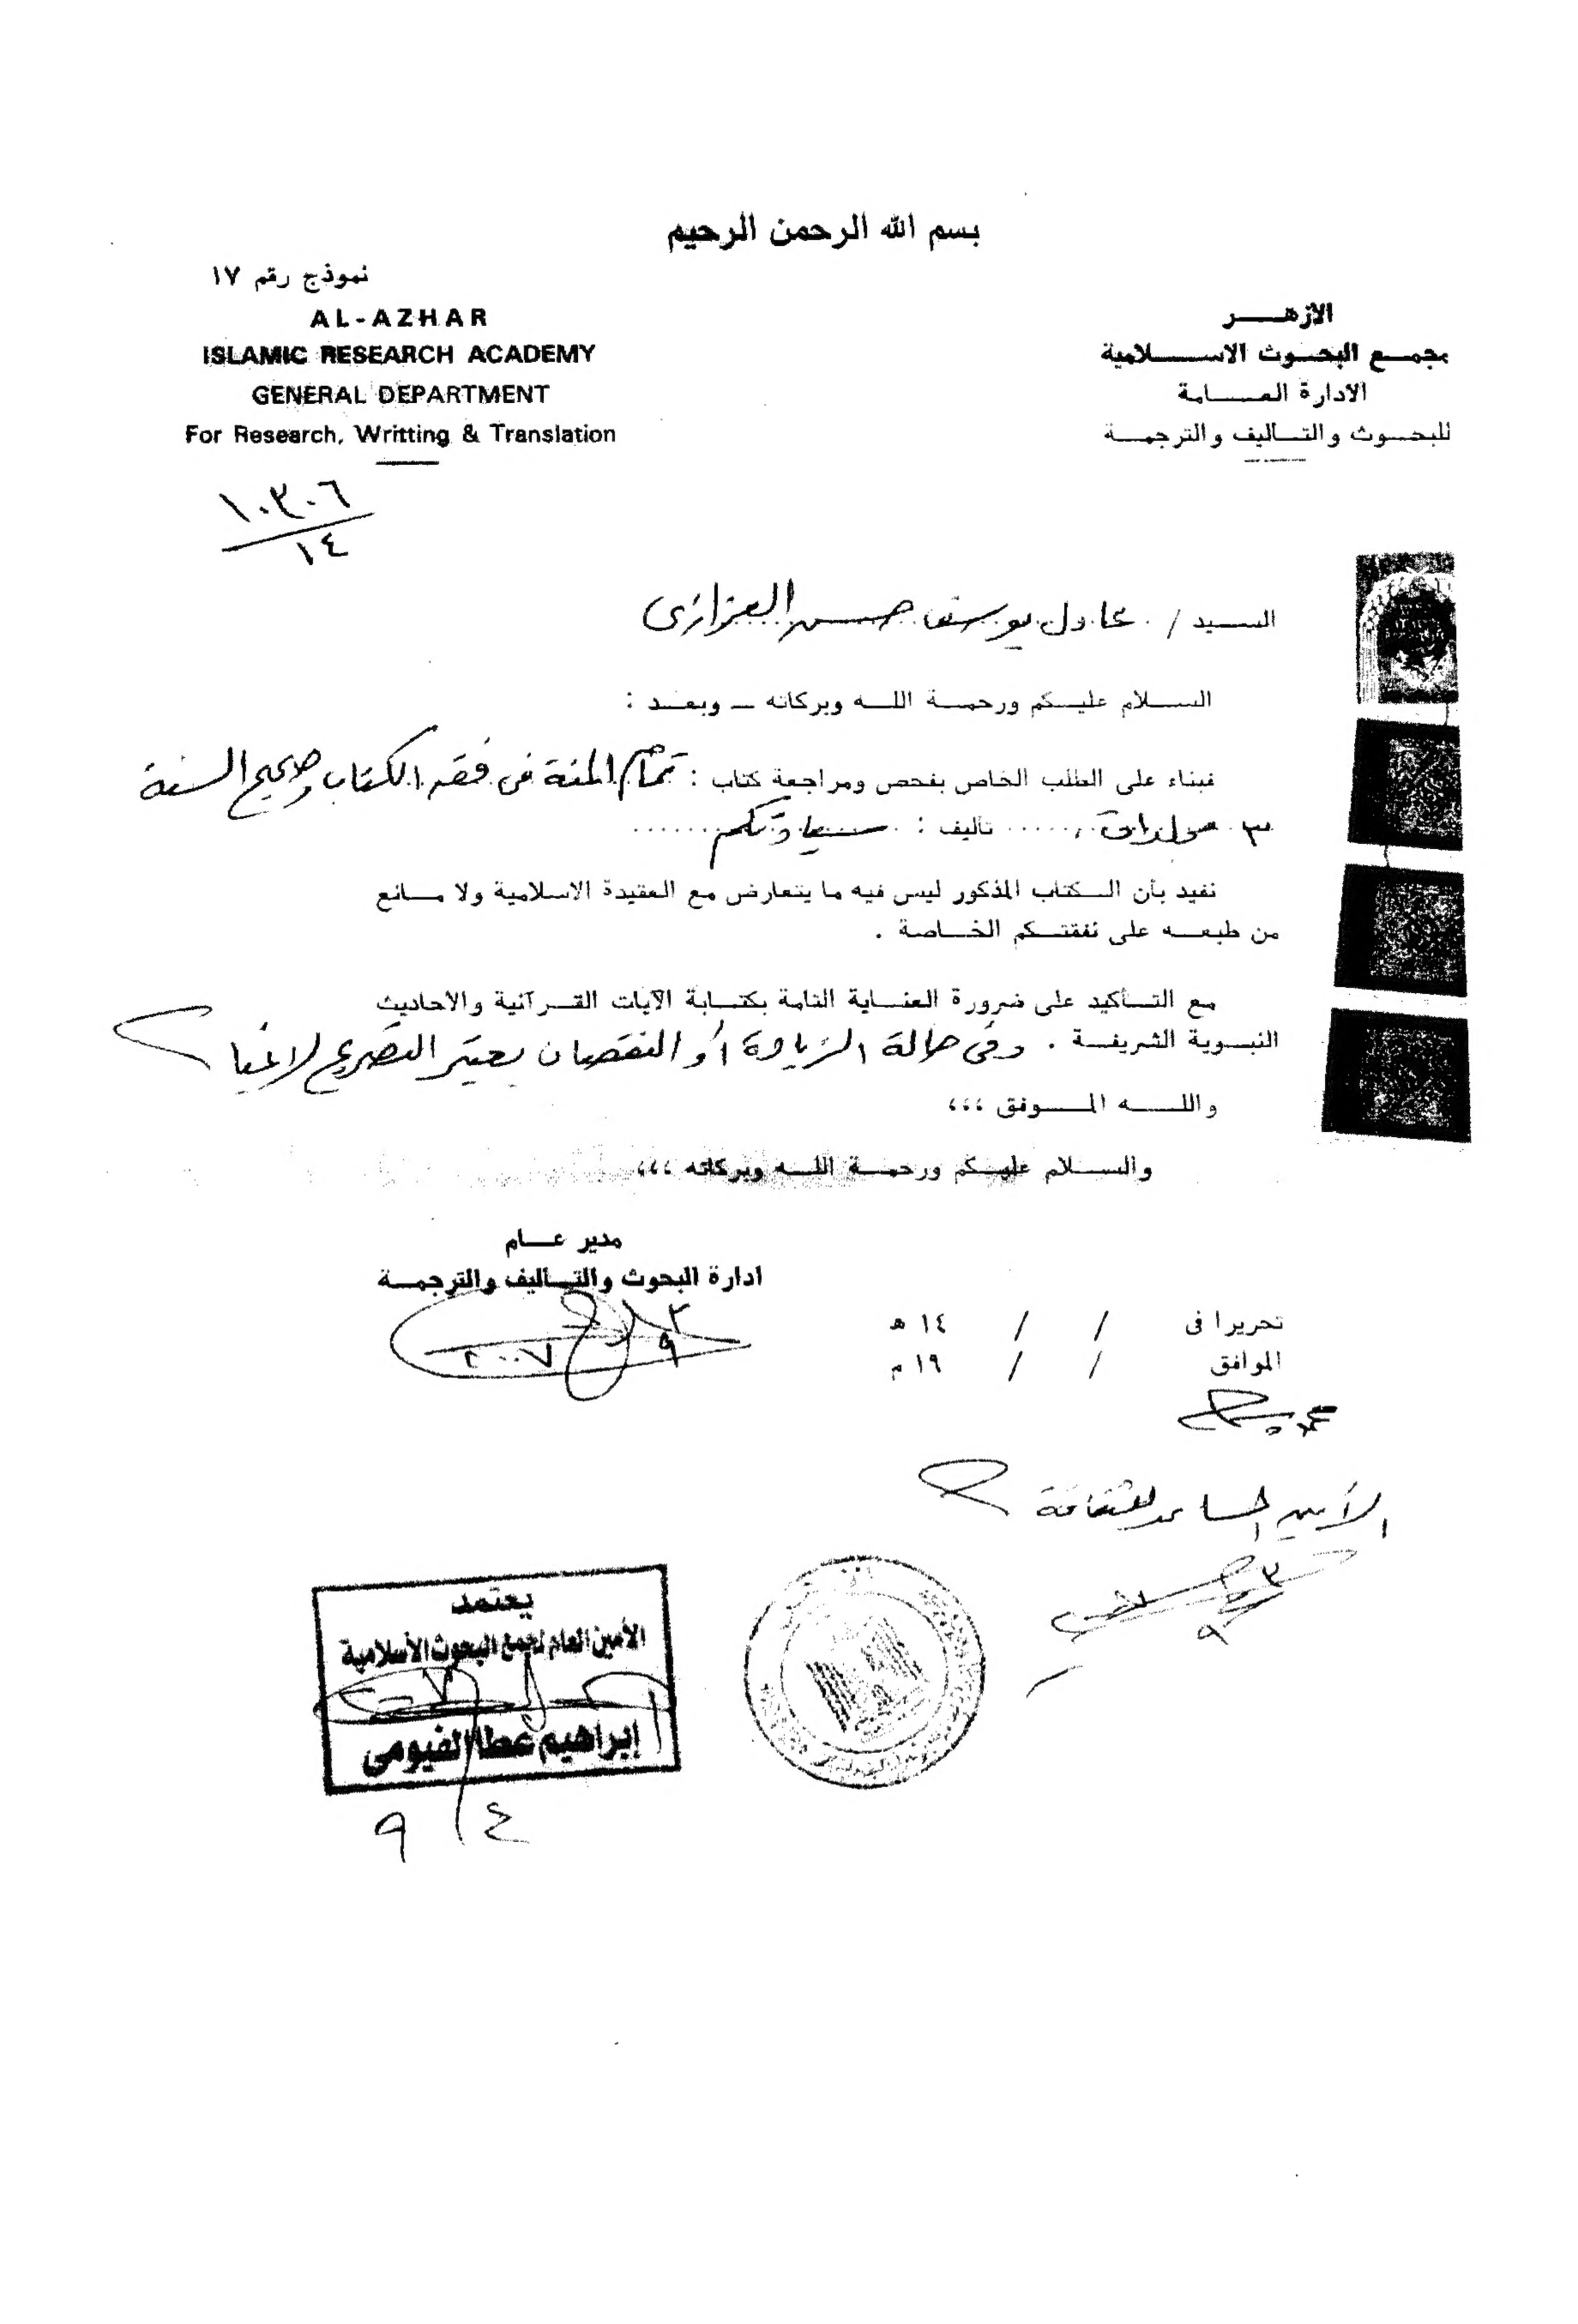 بسم الله الرحمن الرحيم
نموذج رقم ١٧
الازهـــر
مجمـع البحـوث الاسـلامية
الادارة العـامة
للبحـوث والتـاليف والترجمـة
AL-AZHAR
ISLAMIC RESEARCH ACADEMY
GENERAL DEPARTMENT
For Research, Writting & Translation
١٠٣٠٦
١٤
السـيد / عادل يوسف حسن العزازى
السـلام عليـكم ورحمـة اللـه وبركاته ــ وبعـد :
فبناء على الطلب الخاص بفحص ومراجعة كتاب : تمام المنة فى فقه الكتاب وصحيح السنة
٣ مجلدات ..... تأليف : سيادتكم
نفيد بأن الـكتاب المذكور ليس فيه ما يتعارض مع العقيدة الاسلامية ولا مـانع
من طبعـه على نفقتـكم الخـاصة .
مع التـأكيد على ضرورة العنـاية التامة بكتـابة الآيات القـرآنية والأحاديث
النبـوية الشريفـة . وفى حالة الزيادة أو النقصان يعتبر التصريح لاغيا
واللـــه المـــوفق ،،،
والسـلام عليـكم ورحمـة اللـه وبركاته ،،،
مدير عـــام
ادارة البحوث والتـاليف والترجمـة
٣
٩
٢٠٠٧
تحريرا فى / / ١٤ هـ
الموافق / / ١٩ م
الأمين المساعد للثقافة
٣
٩
يعتمد
الأمين العام لمجمع البحوث الأسلامية
٢٠٠٧
إبراهيم عطا الفيومى
٤ / ٩